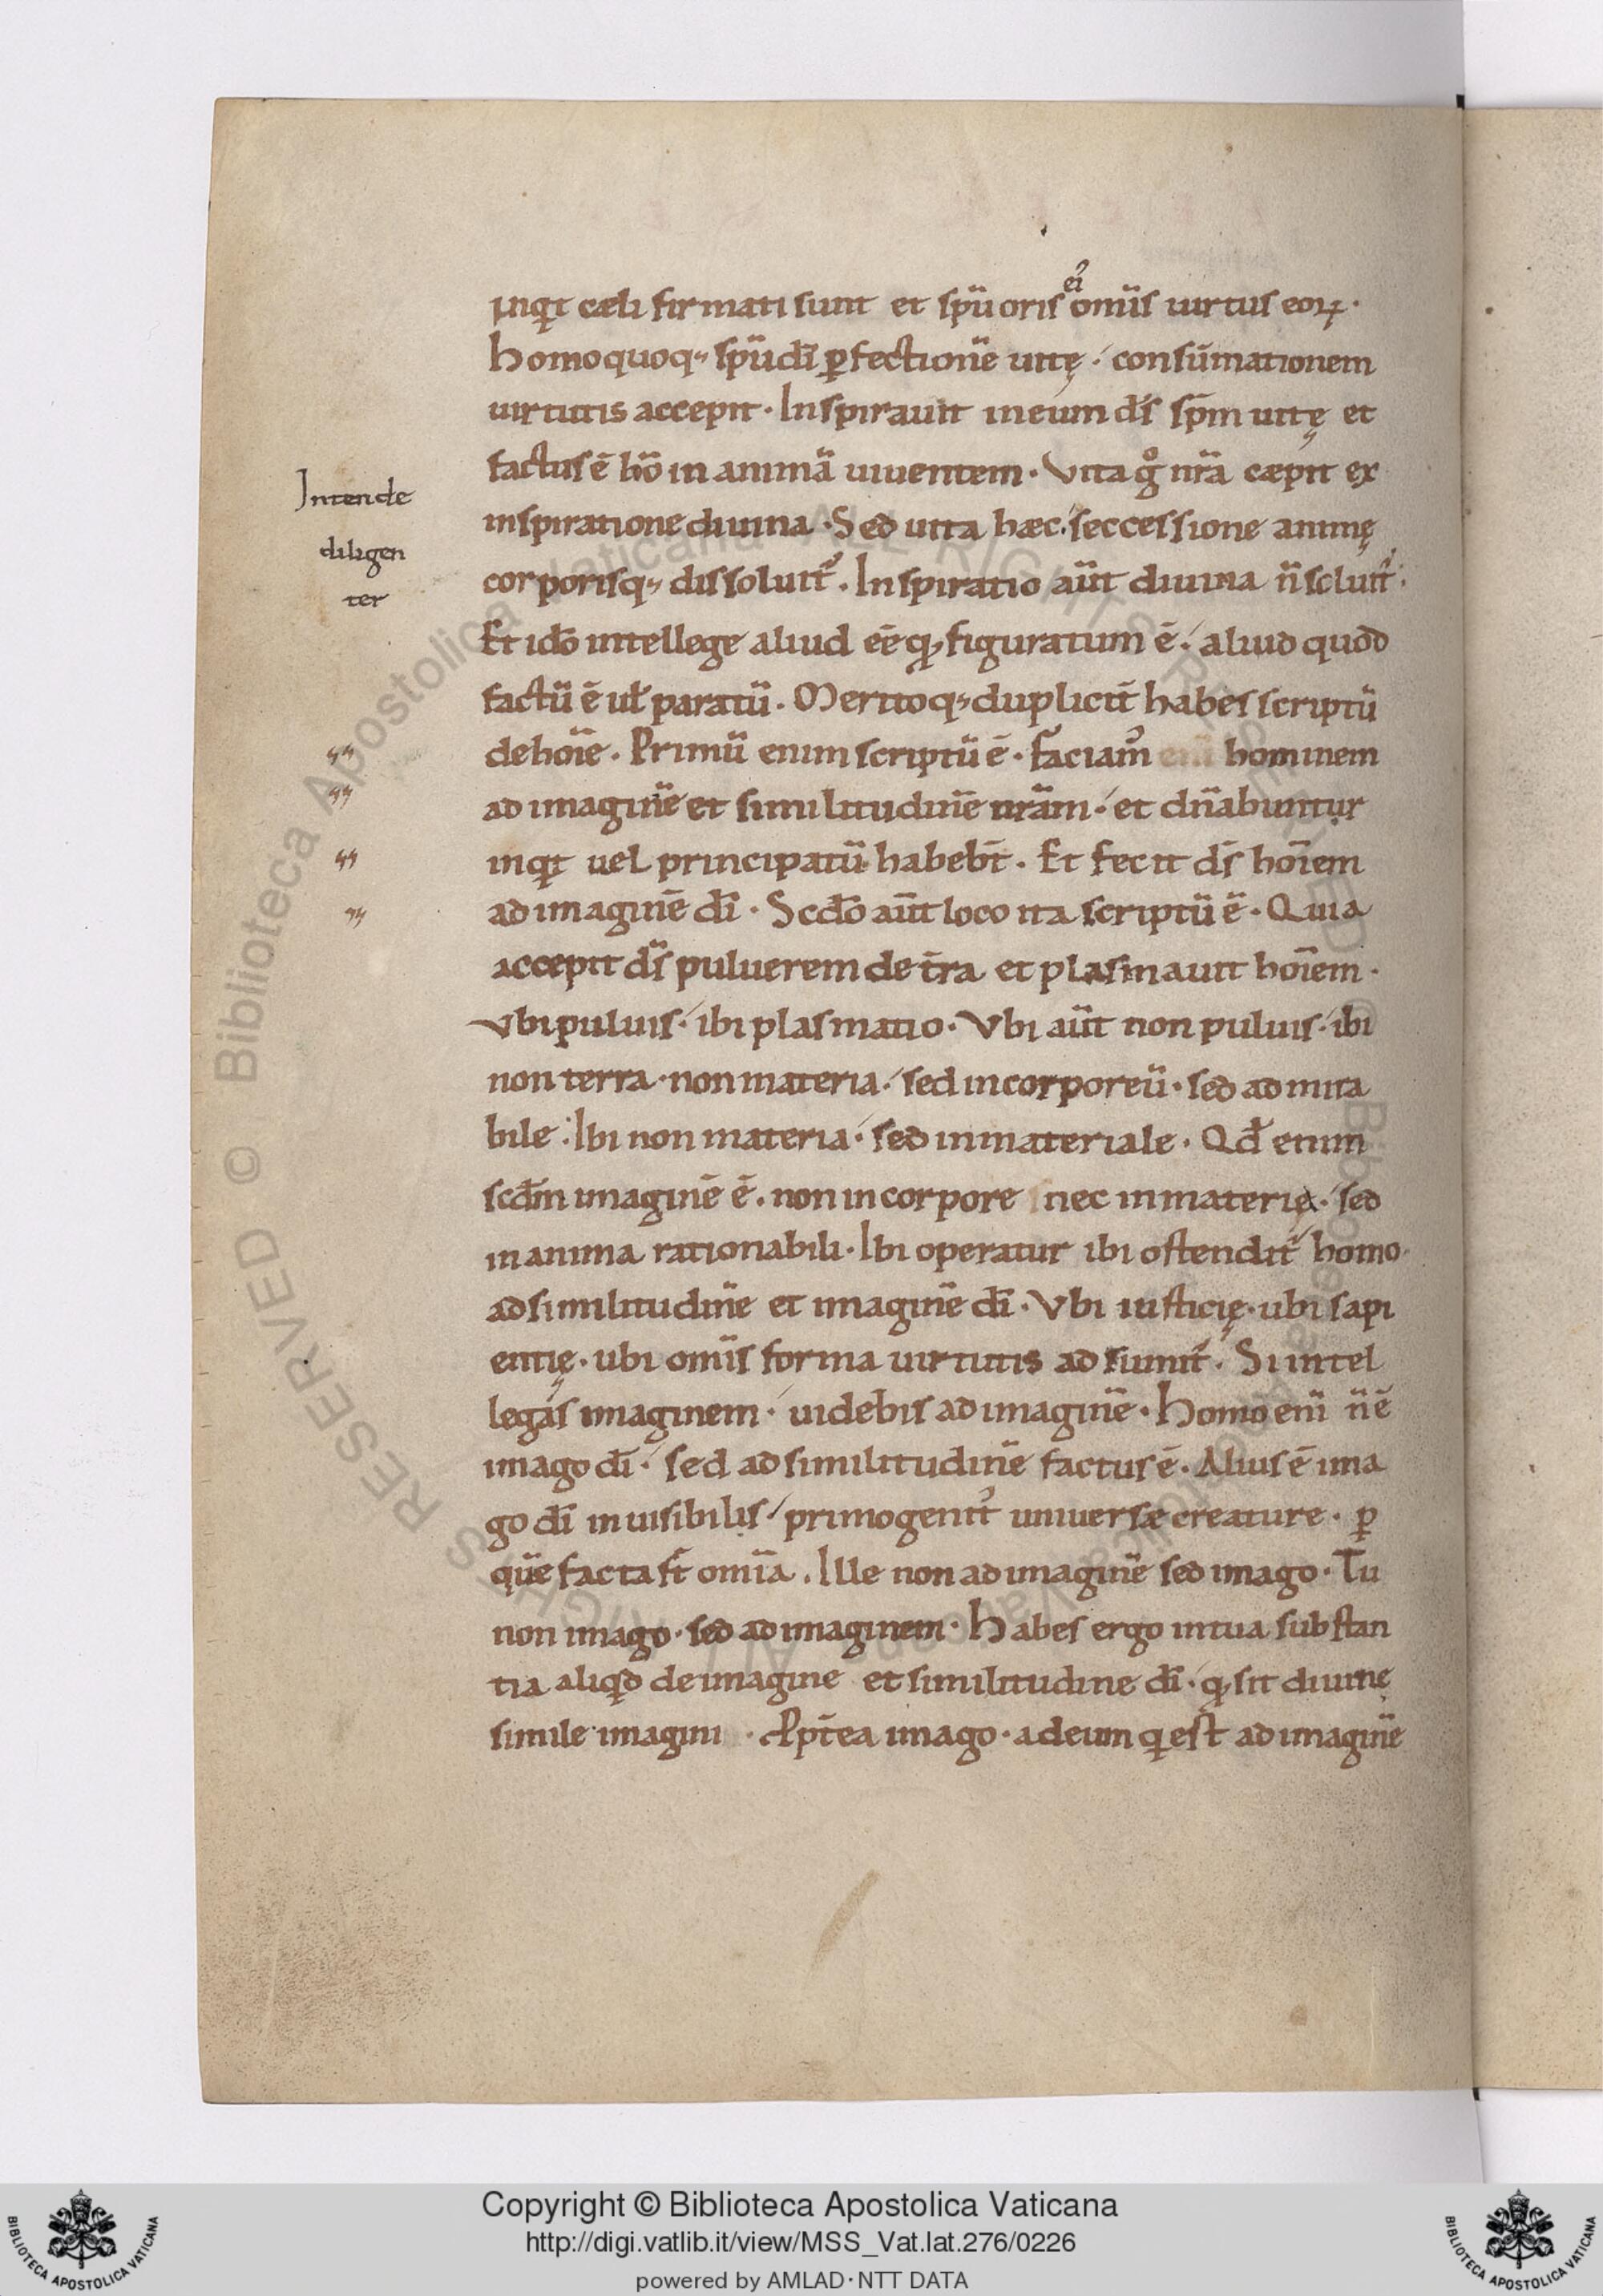 ei᾿
inq̇t cæli firmati sunt et sp̄u oris om̄is uirtus eoꝝ ·
Homo quoq; sp̄u dī ꝑfectionē uitę · consūmationem
uirtutis accepit · Inspirauit in eum ds̄ sp̄m uitę et
factus ē hō in animā uiuentem · Vita gͦ nr̄a cæpit ex
Intende
inspiratione diuina · Sed uita hæc · seccessione animę
diligen
corporisq; dissoluit᾿ · Inspiratio aūt diuina n̄ soluit᾿ ·
ter
Et idō intellege aliud eē qđ figuratum ē · aliud quod
factū ē uł paratū · Meritoq; duplicit̄ habes scriptū
de hoīe · Primū enim scriptū ē · Faciam᾿ eni hominem
ad imaginē et similitudinē nr̄am · et dn̄abuntur
inq̇t uel principatū habebt̄ · Et fecit ds̄ hoīem
ad imaginē dī · Scdō aūt loco ita scriptū ē · Quia
accepit ds̄ puluerem de t̄ra et plasmauit hoīem ·
Vbi puluis · ibi plasmatio · Vbi aūt non puluis · ibi
non terra · non materia · sed incorporeū · sed admira
bile · Ibi non materia · sed inmateriale · Qđ enim
scdm̄ imaginē ē · non in corpore nec in materię · sed
in anima rationabili · Ibi operatur ibi ostendit᾿ homo
ad similitudinē et imaginē dī · Vbi iusticię · ubi sapi
entię · ubi om̄is forma uirtutis adsumit᾿ · Si intel
legas imaginem · uidebis ad imaginē · Homo enī n̄ ē
imago dī · sed ad similitudinē factus ē · Alius ē ima
go dī inuisibilis · primogenit᾿ uniuersæ creature · ꝑ
quē facta st̄ om̄ia · Ille non ad imaginē sed imago · Tu
non imago · sed ad imaginem · Habes ergo in tua substan
tia aliqđ de imagine et similitudine dī · qđ sit diuinę
simile imagini · Ppt̄ea imago · ad eum q̇ est ad imaginē
Copyright © Biblioteca Apostolica Vaticana
http://digi.vatlib.it/view/MSS_Vat.lat.276/0226
powered by AMLAD·NTT DATA
BIBLIOTECA APOSTOLICA VATICANA
BIBLIOTECA APOSTOLICA VATICANA